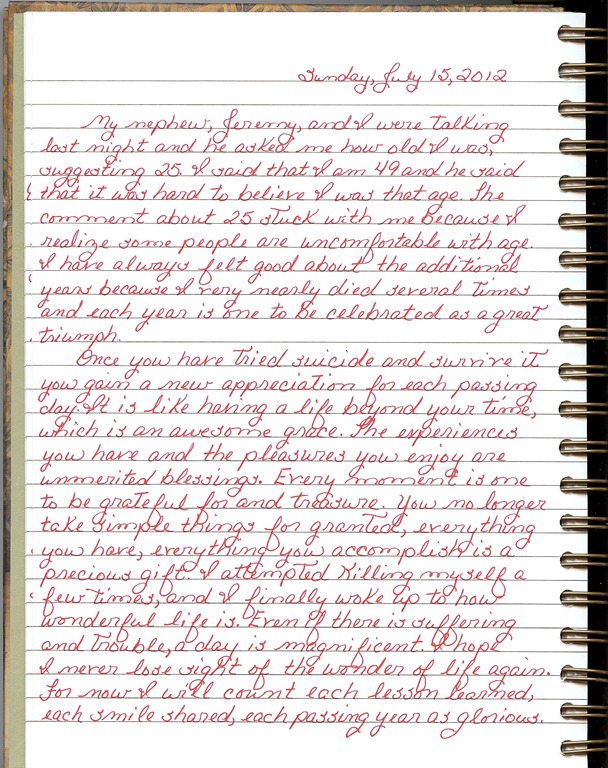 Sunday, July 15, 2012
My nephew, Jeremy, and I were talking
last night and he asked me how old I was,
suggesting 25. I said that I am 49 and he said
that it was hard to believe I was that age. The
comment about 25 stuck with me because I
realize some people are uncomfortable with age.
I have always felt good about the additional
years because I very nearly died several times
and each year is one to be celebrated as a great
triumph.
Once you have tried suicide and survive it
you gain a new appreciation for each passing
day. It is like having a life beyond your time,
which is an awesome grace. The experiences
you have and the pleasures you enjoy are
unmerited blessings. Every moment is one
to be grateful for and treasure. You no longer
take simple things for granted, everything
you have, everything you accomplish is a
precious gift. I attempted killing myself a
few times, and I finally woke up to how
wonderful life is. Even if there is suffering
and trouble, a day is magnificent. I hope
I never lose sight of the wonder of life again.
For now I will count each lesson learned,
each smile shared, each passing year as glorious.